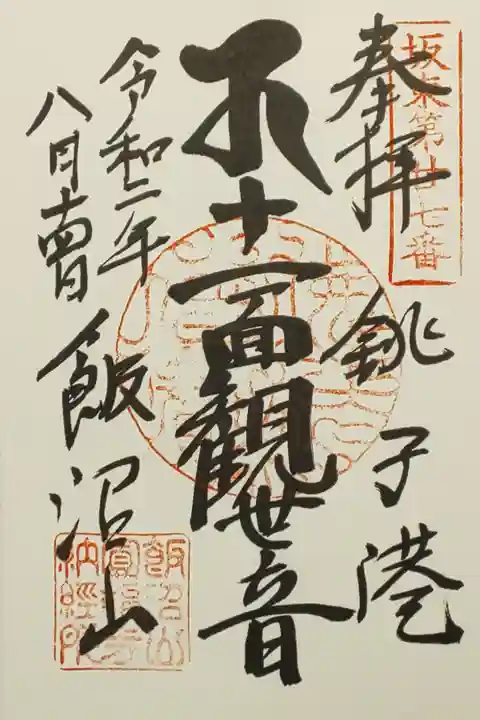 坂東第廿七番
奉拝
銚子港
十一面観世音
令和二年
八月十四日
飯沼山
飯沼山
圓福寺
納經所